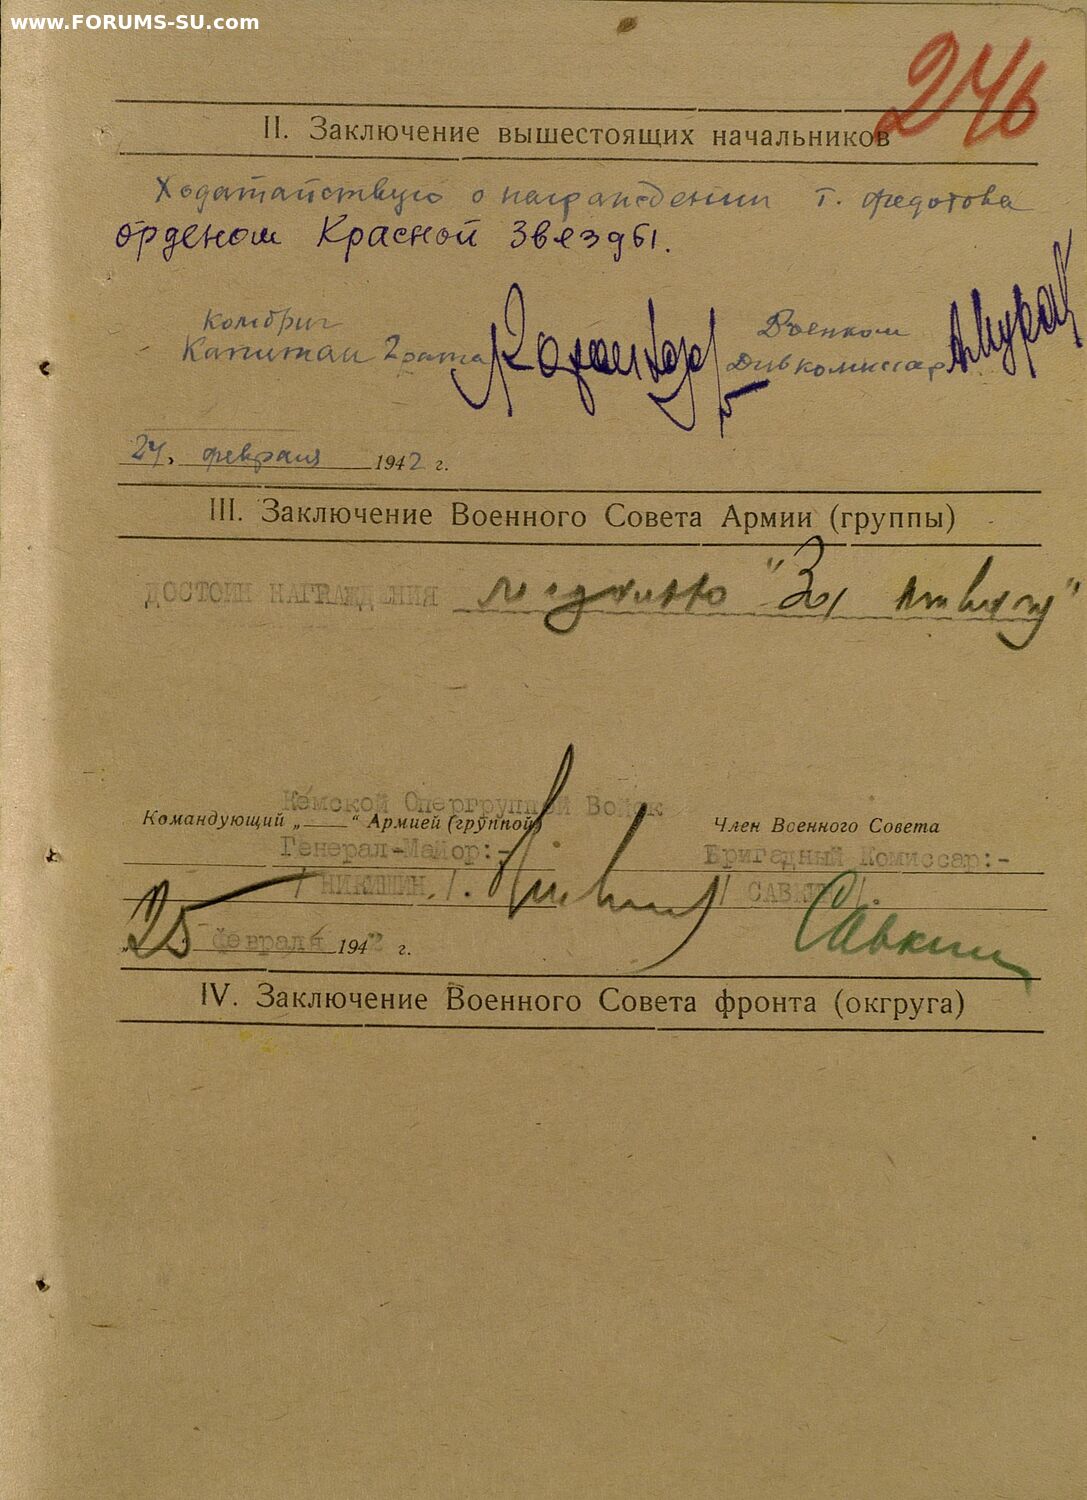 www.FORUMS-SU.com
246
II. Заключение вышестоящих начальников
Ходатайствую о награждении т. Федотова
орденом Красной Звезды.
Комбриг Военком
Капитан 2 ранга Дивкомиссар
24, февраля 1942 г.
III. Заключение Военного Совета Армии (группы)
ДОСТОИН НАГРАЖДЕНИЯ медалью "За отвагу"
Кемской Опергруппой Войск
Командующий „ “ Армией (группой) Член Военного Совета
Генерал-Майор:- Бригадный Комиссар:-
/ НИКИШИН,/. / САВКИН /.
Савкин
„25 февраля 1942 г.
IV. Заключение Военного Совета фронта (округа)